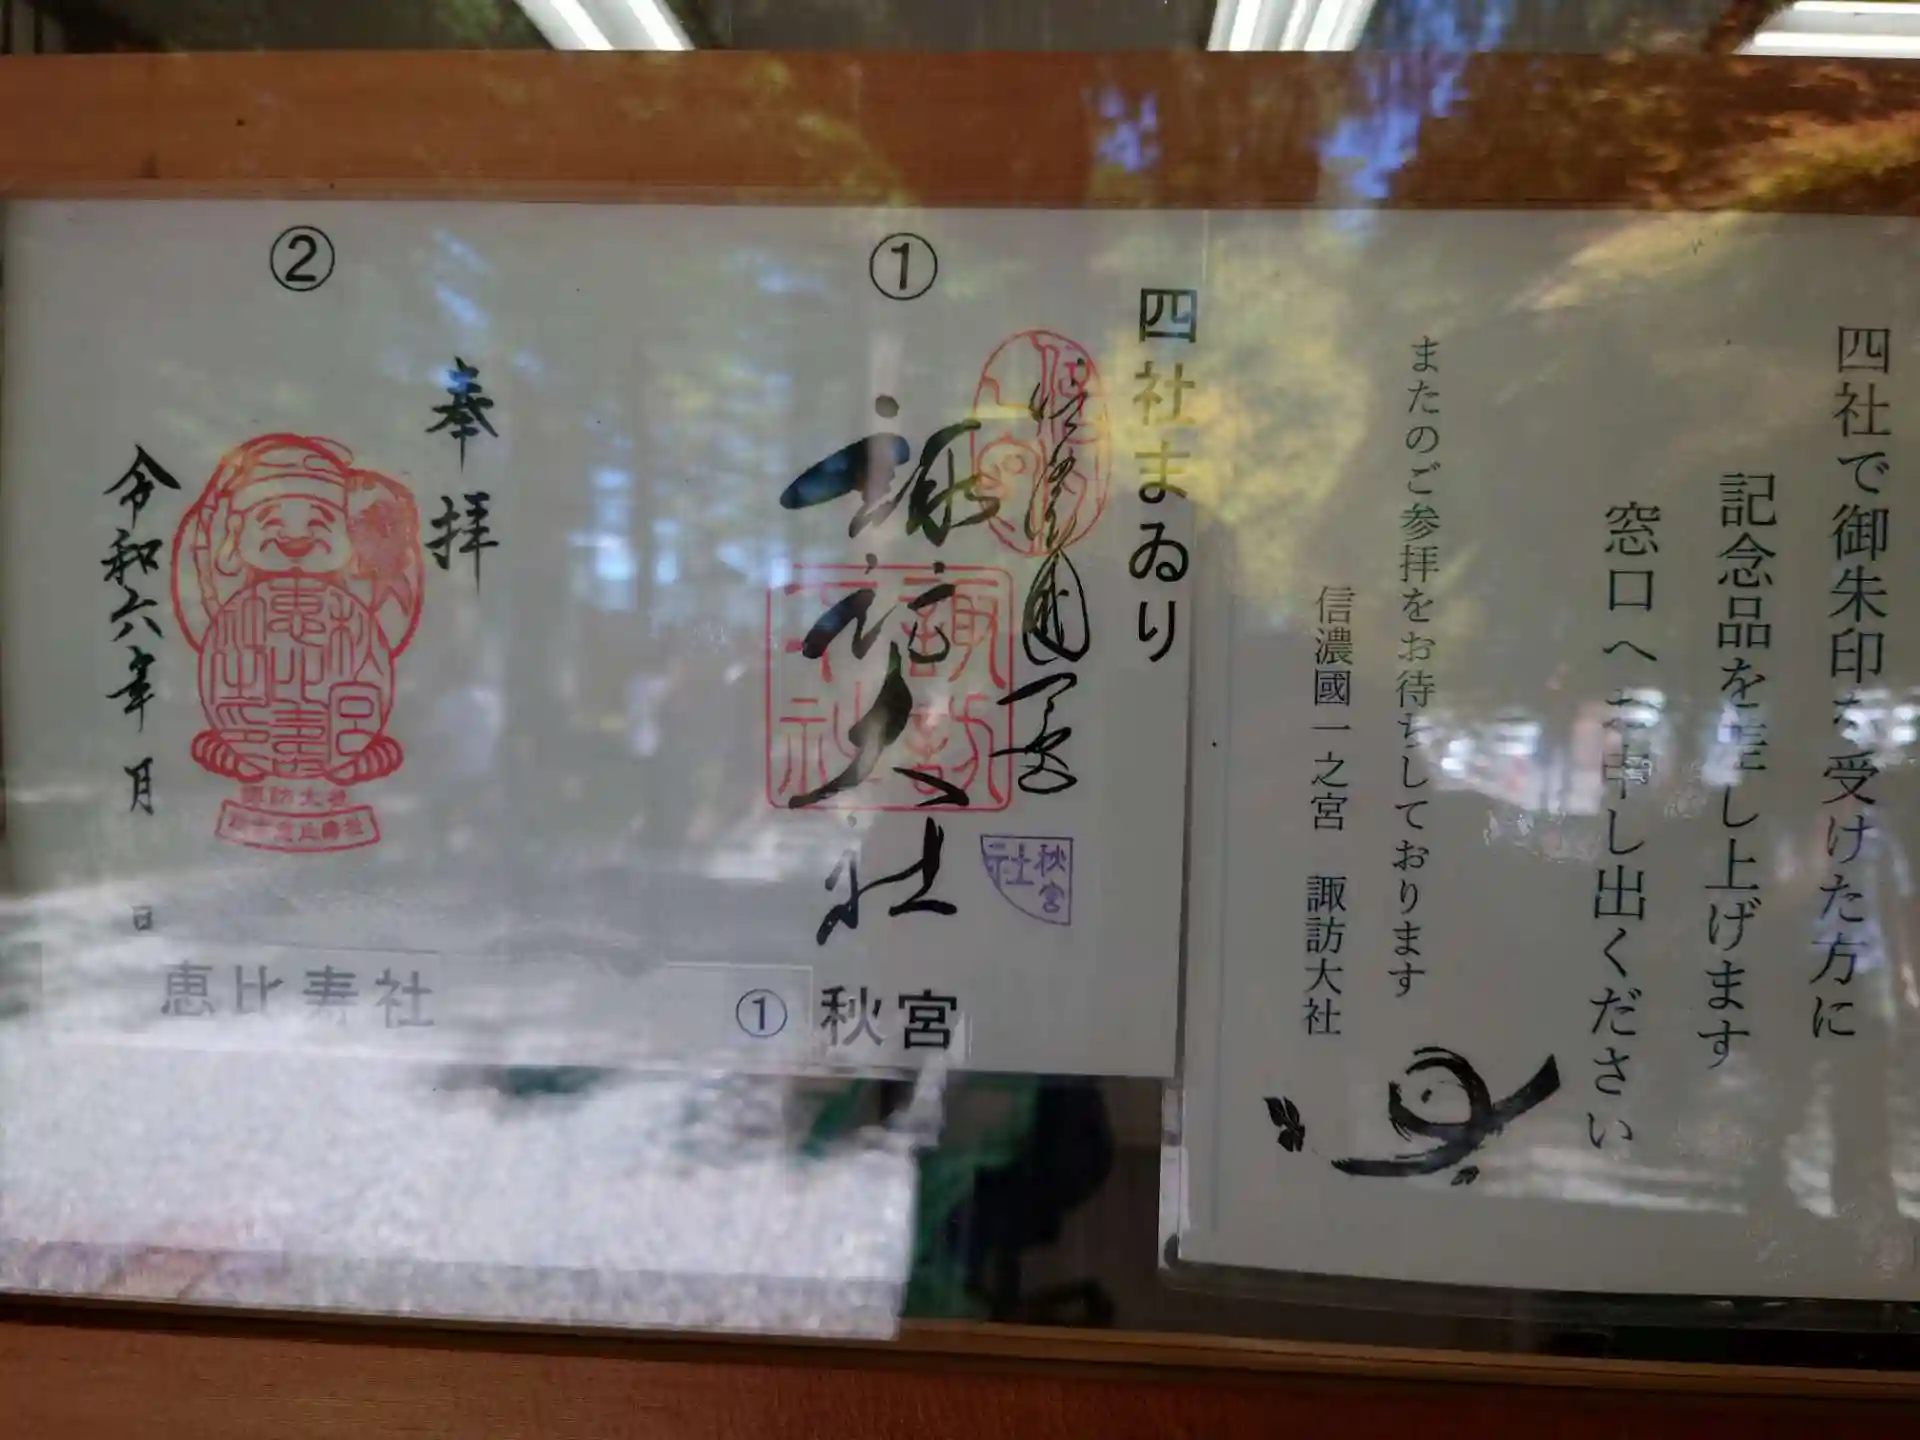 四社で御朱印を受けた方に
記念品を差し上げます
窓口へお申し出ください
またのご参拝をお待ちしております
信濃國一之宮 諏訪大社
四社まゐり
①
信濃國一之宮
諏訪大社
諏訪大社
秋宮社
① 秋宮
②
奉拝
秋宮恵比寿社印
諏訪大社
令和六年 月 日
恵比寿社